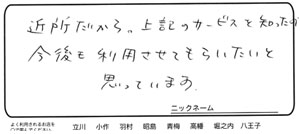 近所だから。上記のサービスを知ったので
今後も利用させてもらいたいと
思っています。
ニックネーム
よく利用されるお店を
○で囲んでください 立川 小作 羽村 昭島 青梅 高幡 堀之内 八王子